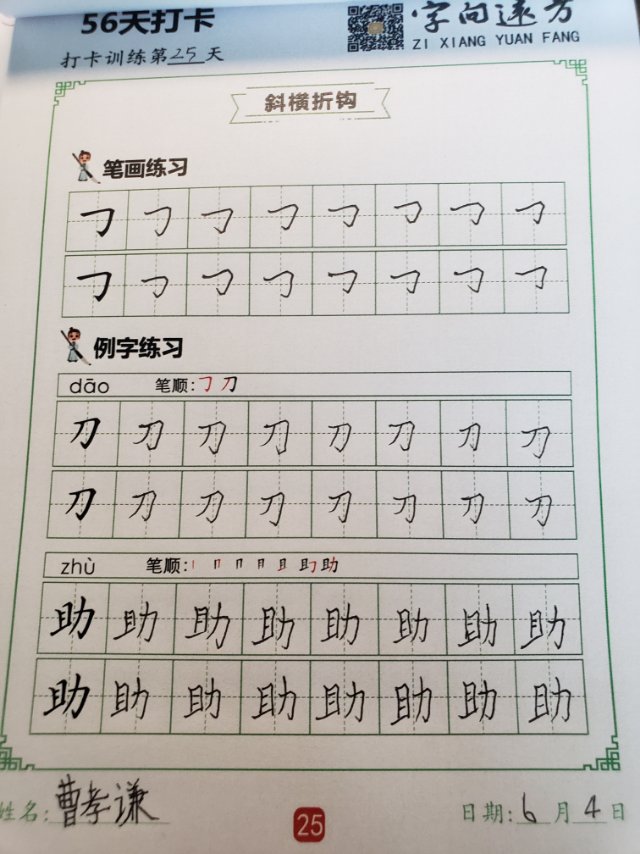 56天打卡
字向远方
ZI XIANG YUAN FANG
打卡训练第25天
斜横折钩
笔画练习
㇆㇆㇆㇆㇆㇆㇆㇆
㇆㇆㇆㇆㇆㇆㇆㇆
例字练习
dāo 笔顺:㇆刀
刀刀刀刀刀刀刀刀
刀刀刀刀刀刀刀刀
zhù 笔顺:丨 𠃍 冂 月 且 助
助助助助助助助助
助助助助助助助助
姓名:曹孝谦
25
日期:6月4日